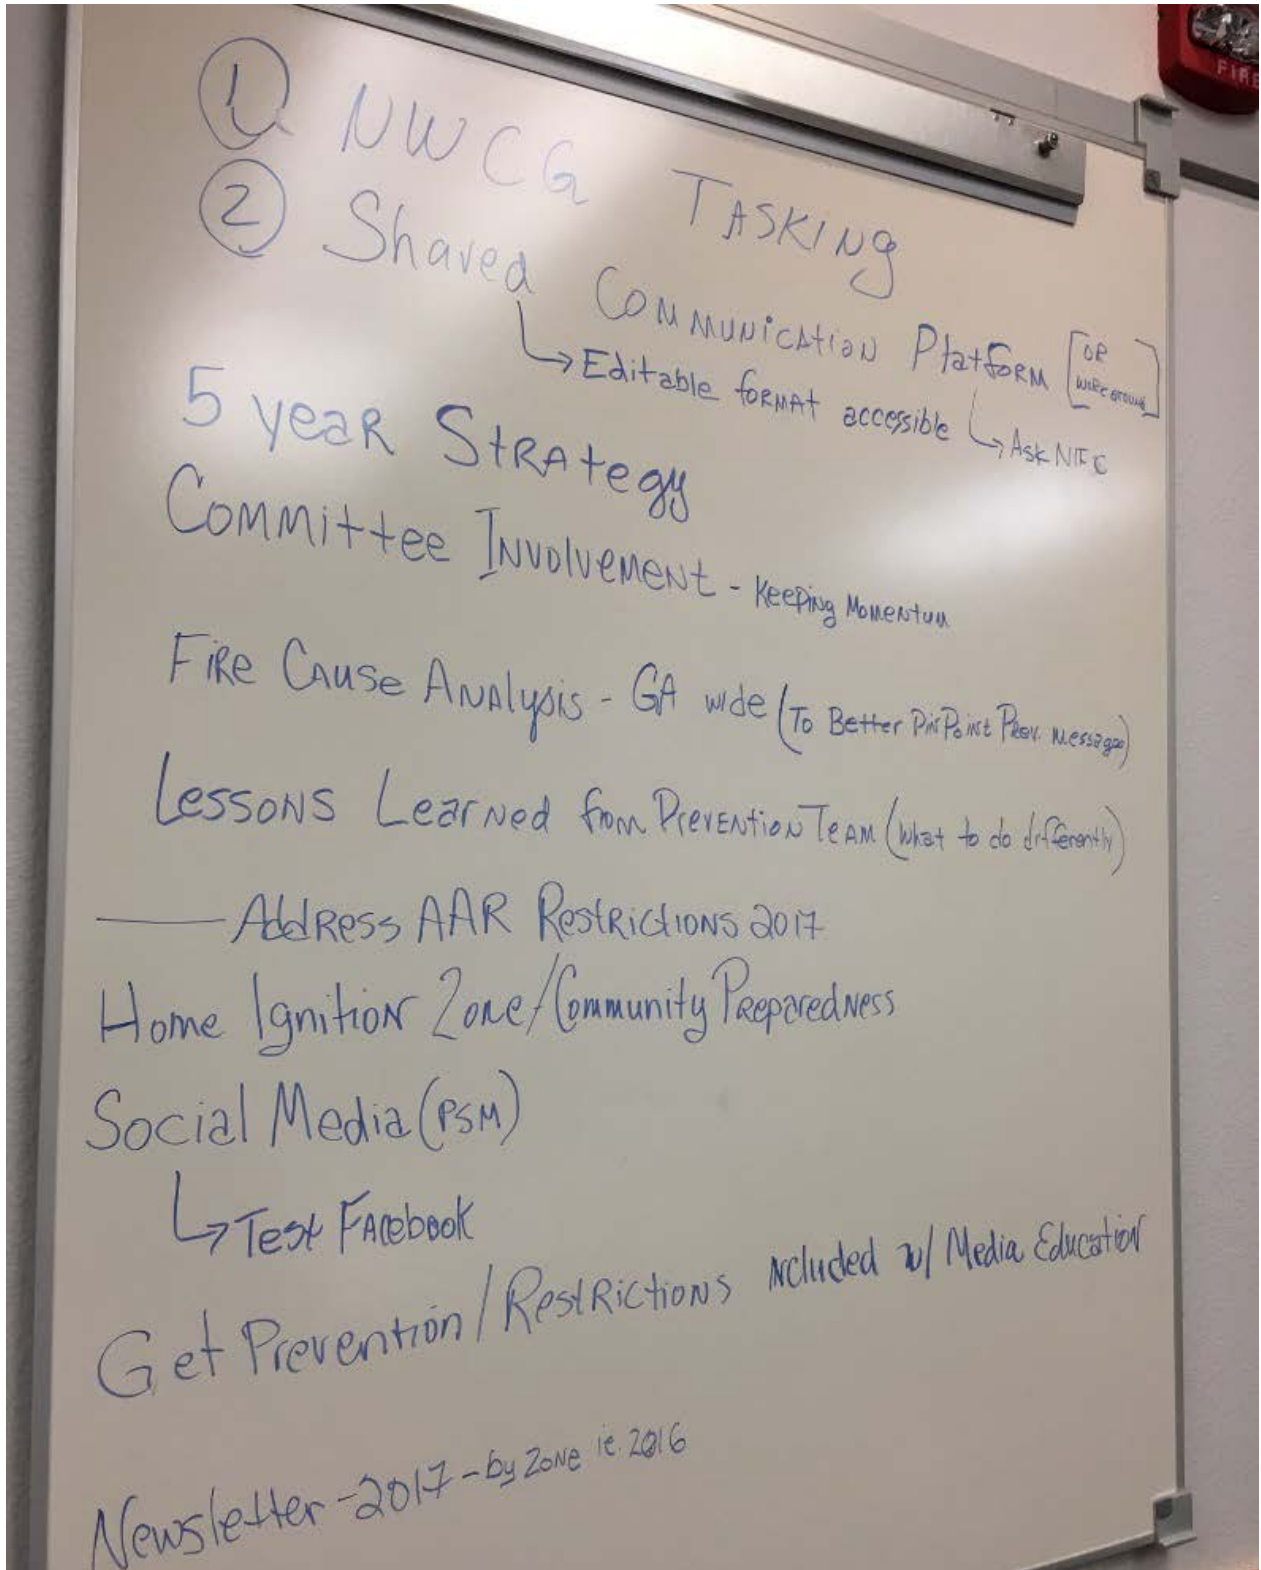 FIRE
① NWCG TASKING
② Shared Communication Platform [OR workaround]
↳ Editable format accessible
↳ Ask NIFC
5 year Strategy
Committee Involvement - Keeping Momentum
Fire Cause Analysis - GA wide (To Better PinPoint Prev. Messages)
Lessons Learned from Prevention Team (what to do differently)
— Address AAR Restrictions 2017
Home Ignition Zone/Community Preparedness
Social Media (PSM)
↳ Test Facebook
Get Prevention/Restrictions ncluded w/ Media Education
Newsletter - 2017 - by Zone ie. 2016